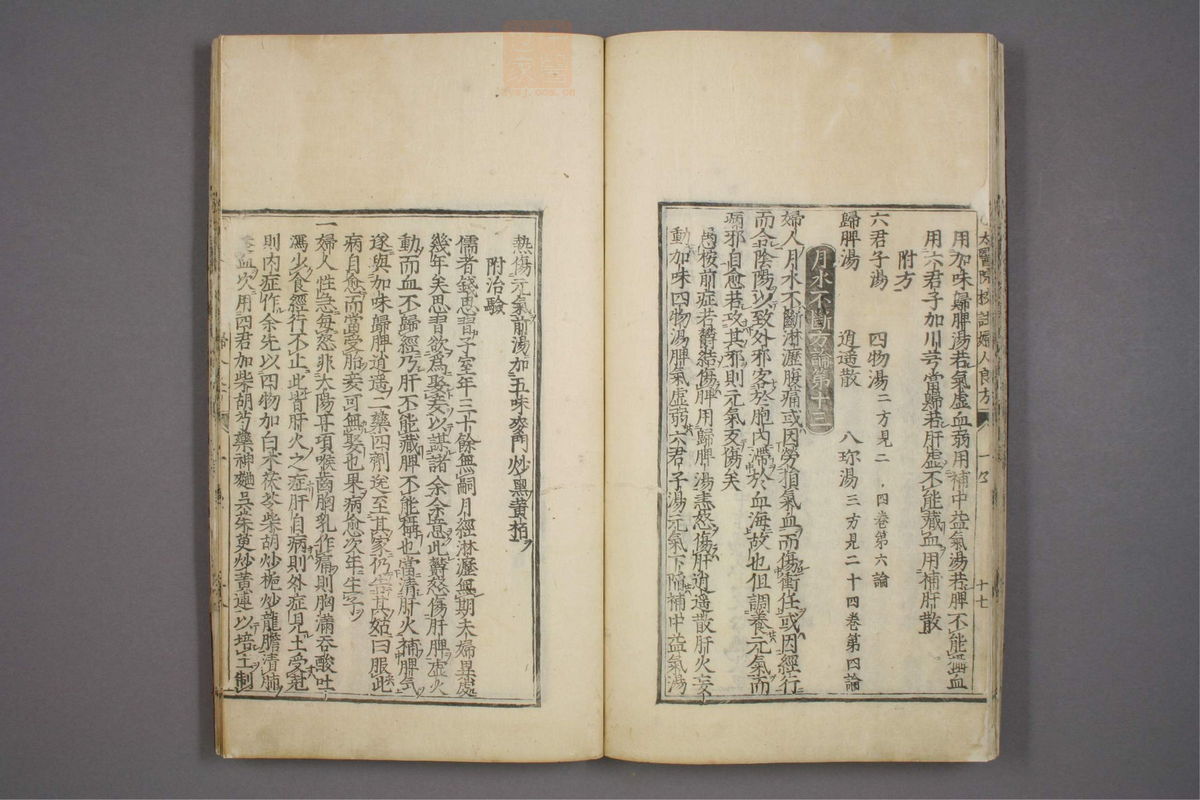 太醫院校註婦人良方
用加味歸脾湯若氣虛血弱用補中益氣湯若脾不能攝血
用六君子加川芎當歸若肝虛不能藏血用補肝散
附方
六君子湯 四物湯二方見二十四卷第六論
歸脾湯 逍遥散 八珍湯三方見二十四卷第四論
月水不斷方論第十三
婦人月水不斷淋瀝腹痛或因勞損氣血而傷衝任或因經行
而合陰陽以致外邪客於胞內滯於血海故也但調養元氣而
病邪自愈若攻其邪則元氣反傷矣
愚按前症若鬱結傷脾用歸脾湯恚怒傷肝逍遥散肝火妄
動加味四物湯脾氣虛弱六君子湯元氣下陷補中益氣湯
熱傷元氣前湯加五味麥門炒黑黃栢
附治驗
儒者錢思習子室年三十餘無嗣月經淋瀝無期夫婦異處
幾年矣思習欲爲娶妾以謀諸余余意此鬱怒傷肝脾虛火
動而血不歸經乃肝不能藏脾不能攝也當清肝火補脾氣
遂與加味歸脾逍遥二藥四劑送至其家仍告其姑曰服此
病自愈而當受胎妾可無娶也果病愈次年生子
一婦人性急每怒非太陽耳項喉齒胸乳作痛則胸滿吞酸吐
瀉少食經行不止此皆肝火之症肝自病則外症見土受尅
則內症作余先以四物加白朮茯苓柴胡炒梔炒龍膽清肺
養血次用四君加柴胡芍藥神麯吳茱萸炒黃連以培土制